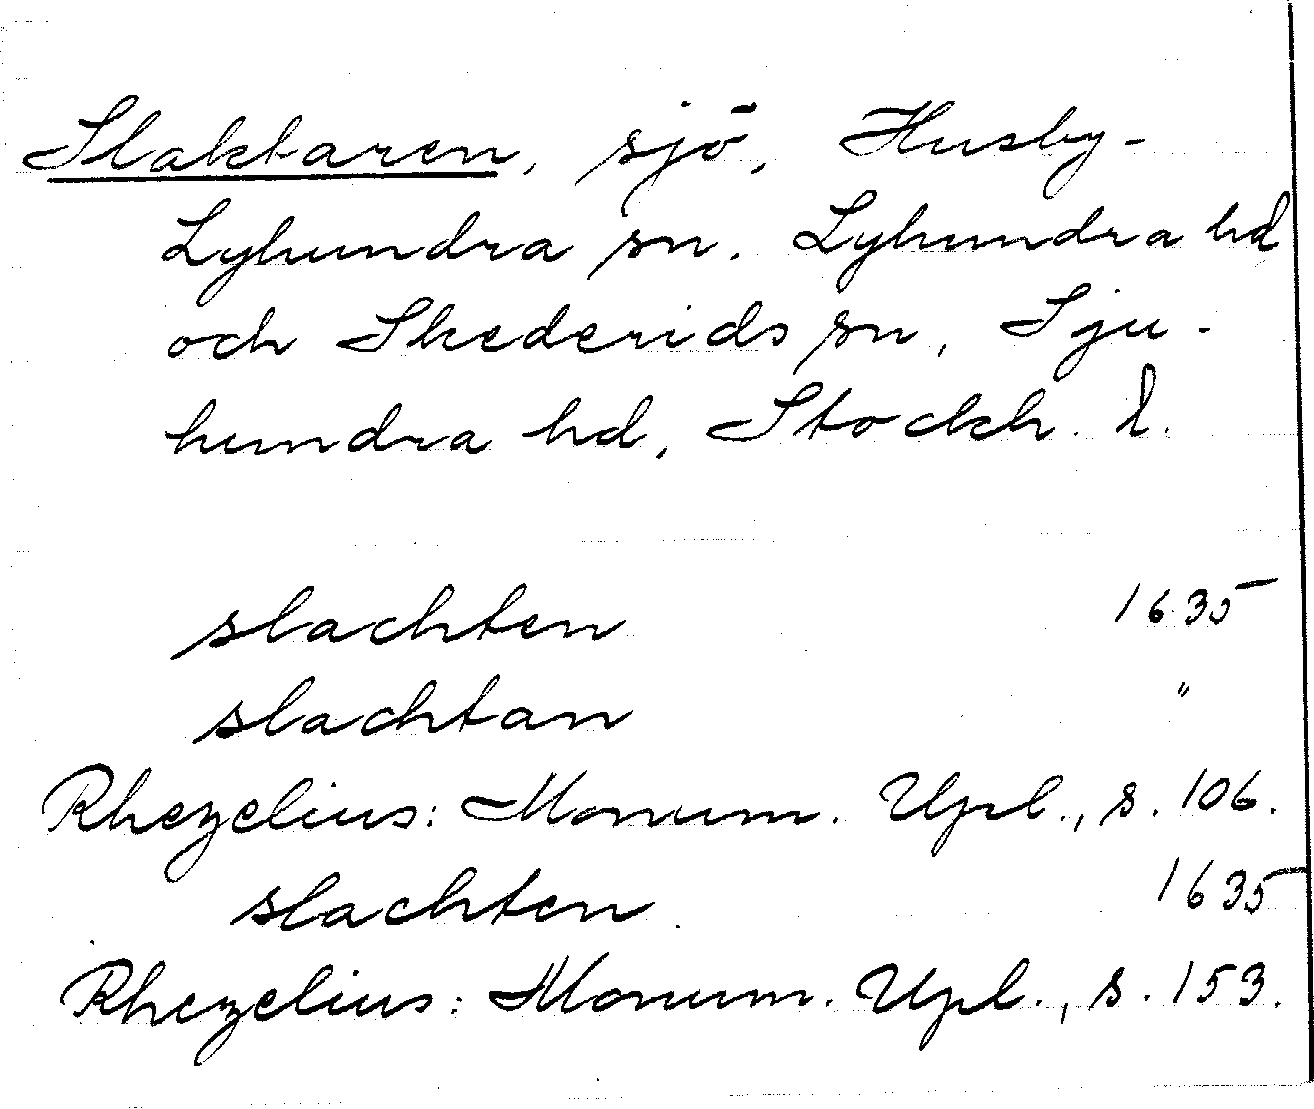 Slaktaren, sjö, Husby-
Lyhundra sn. Lyhundra hd
och Skederids sn, Sju-
hundra hd, Stockh. l.
slachten 1635
slachtan "
Rhezelius: Monum. Upl., s. 106.
slachten 1635
Rhezelius: Monum. Upl., s. 153.